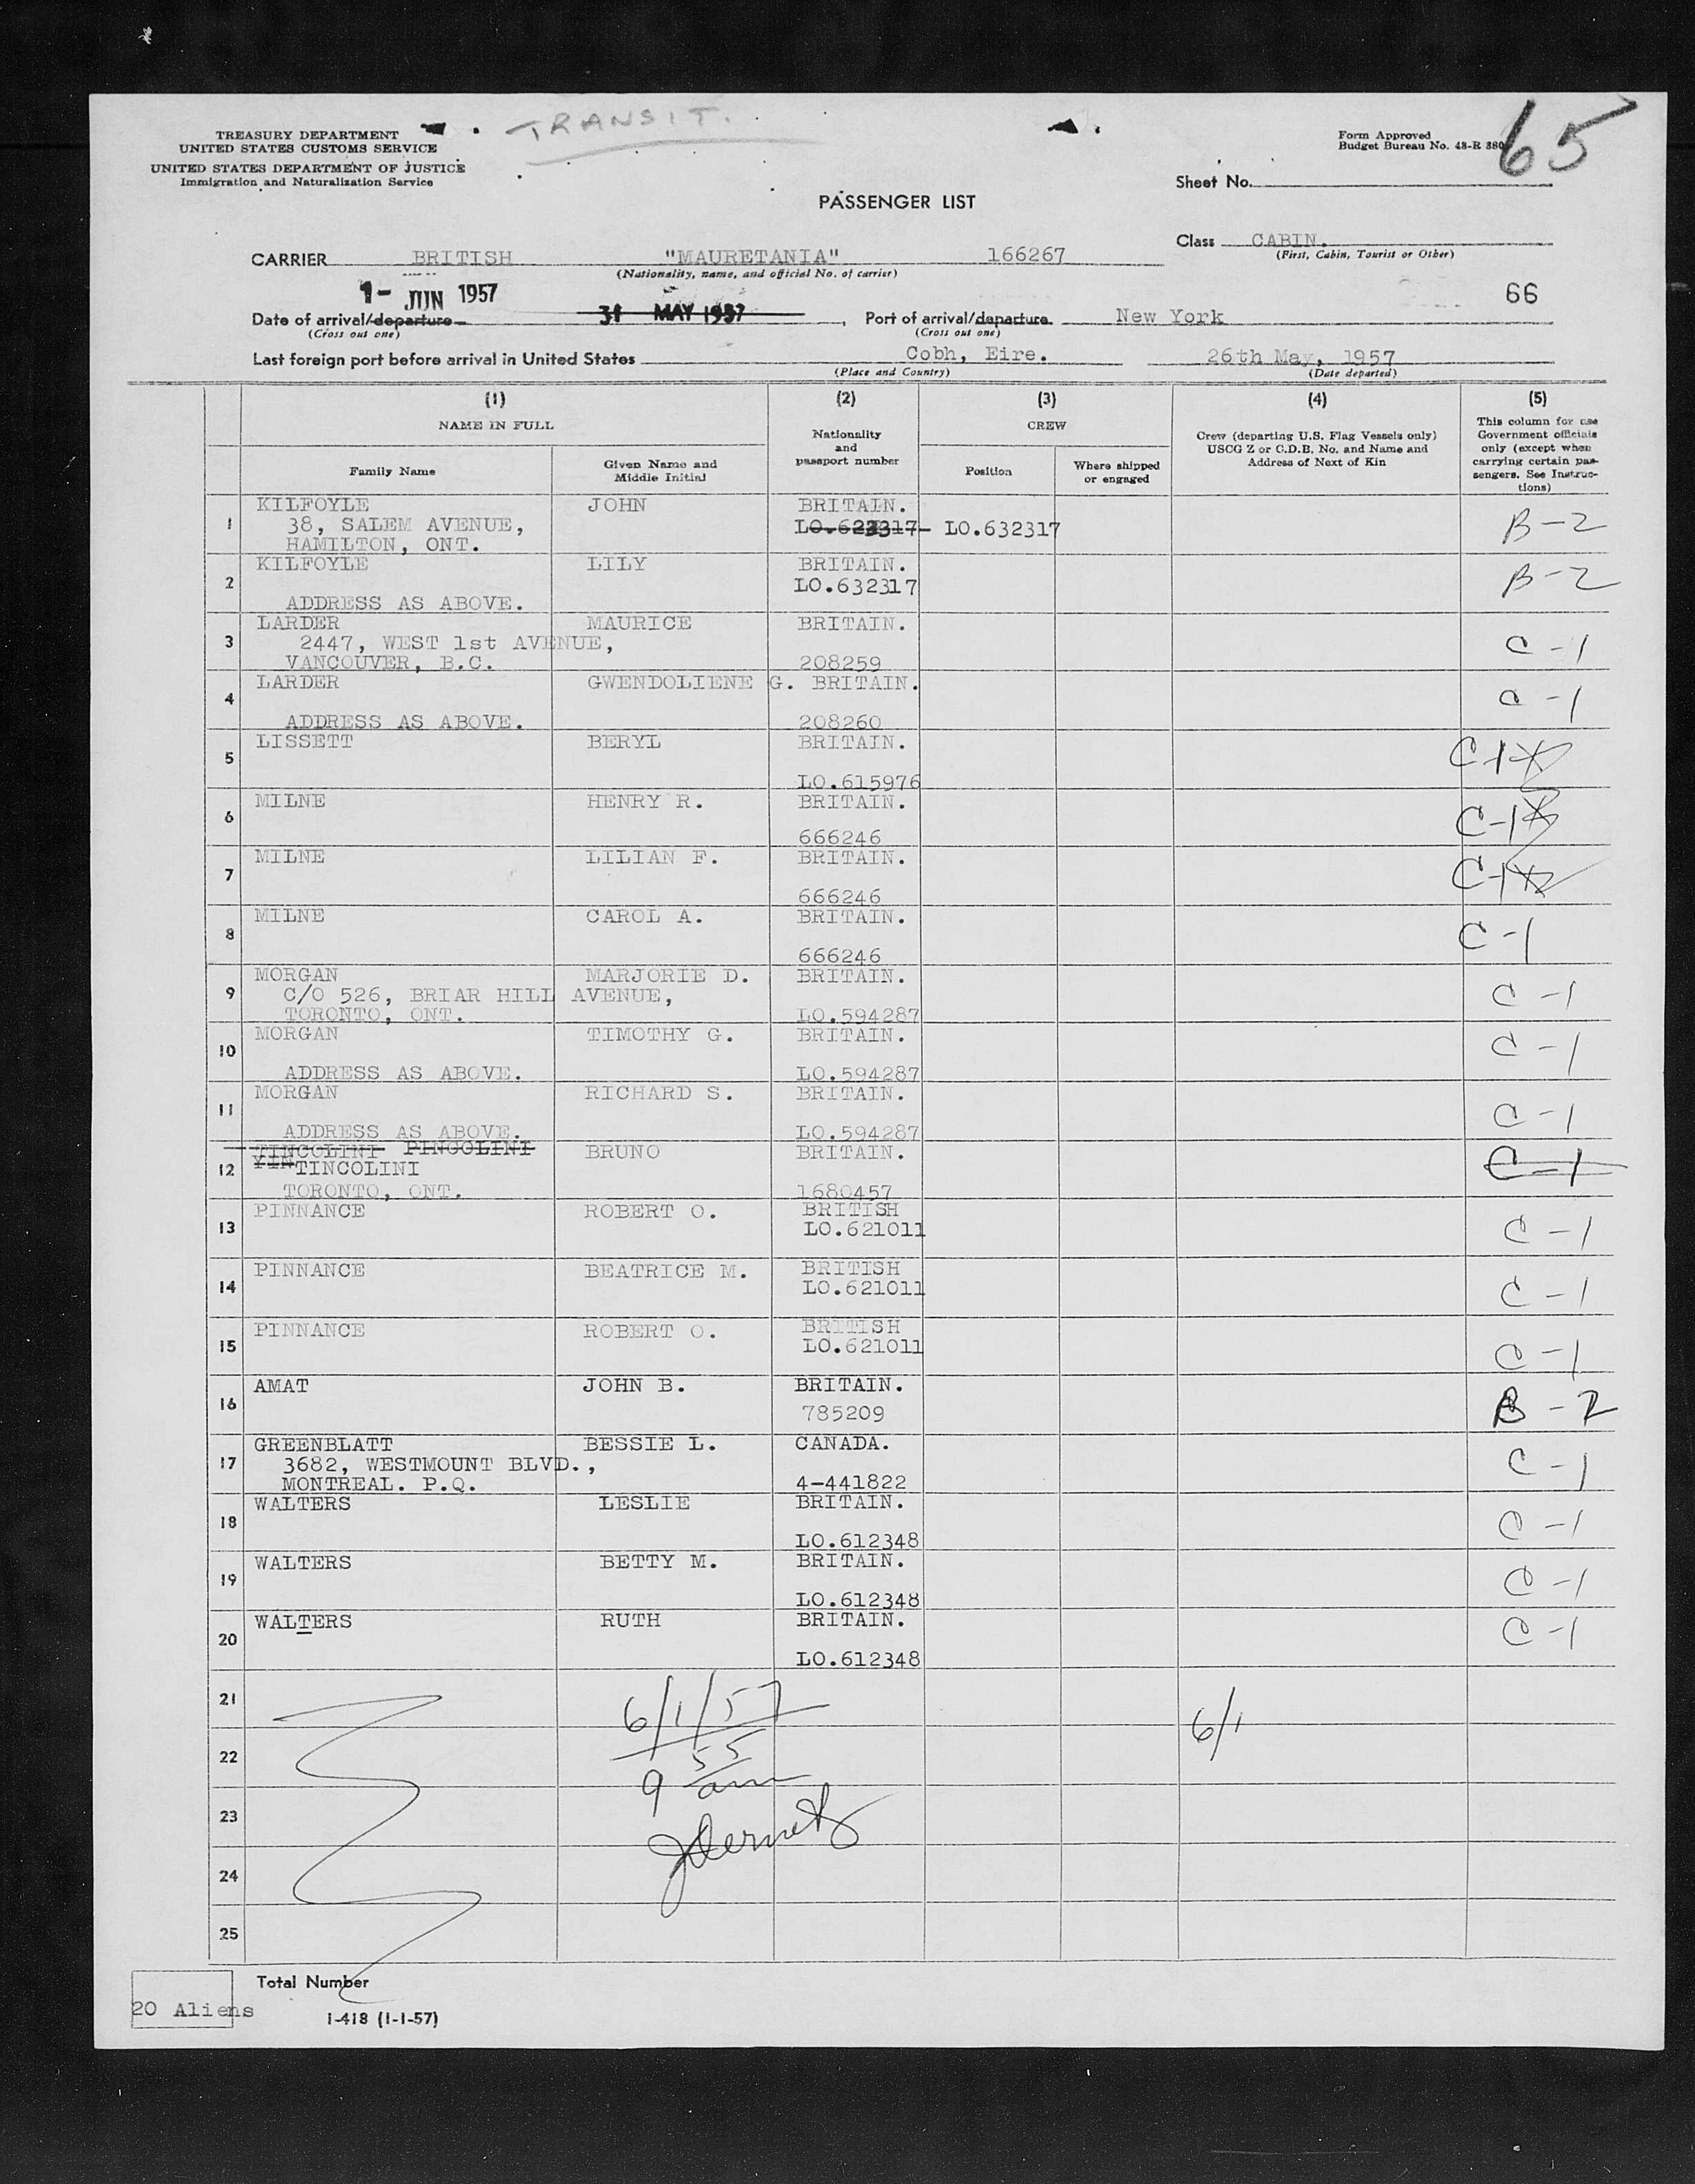 TRANSIT.
TREASURY DEPARTMENT
UNITED STATES CUSTOMS SERVICE
UNITED STATES DEPARTMENT OF JUSTICE
Immigration and Naturalization Service
Form Approved
Budget Bureau No. 43-R 380
65
Sheet No.
PASSENGER LIST
Class CABIN.
(First, Cabin, Tourist or Other)
CARRIER BRITISH "MAURETANIA" 166267
(Nationality, name, and official No. of carrier)
1- JUN 1957
66
Date of arrival/departure 31 MAY 1957, Port of arrival/departure New York
(Cross out one) (Cross out one)
Last foreign port before arrival in United States Cobh, Eire. 26th May, 1957
(Place and Country) (Date departed)
(1) (2) (3) (4) (5)
NAME IN FULL
Family Name
Given Name and
Middle Initial
Nationality
and
passport number
CREW
Position
Where shipped
or engaged
Crew (departing U.S. Flag Vessels only)
USCG Z or C.D.B. No. and Name and
Address of Next of Kin
This column for use
Government officials
only (except when
carrying certain pas-
sengers. See Instruc-
tions)
KILFOYLE JOHN BRITAIN.
1 38, SALEM AVENUE, LO.623317 LO.632317 B-2
HAMILTON, ONT.
KILFOYLE LILY BRITAIN.
2 LO.632317 B-2
ADDRESS AS ABOVE.
LARDER MAURICE BRITAIN.
3 2447, WEST 1st AVENUE, C-1
VANCOUVER, B.C. 208259
LARDER GWENDOLIENE G. BRITAIN.
4 C-1
ADDRESS AS ABOVE. 208260
LISSETT BERYL BRITAIN.
5 C-1
LO.615976
MILNE HENRY R. BRITAIN.
6 C-1
666246
MILNE LILIAN F. BRITAIN.
7 C-1
666246
MILNE CAROL A. BRITAIN.
8 C-1
666246
MORGAN MARJORIE D. BRITAIN.
9 C/O 526, BRIAR HILL AVENUE, C-1
TORONTO, ONT. LO.594287
MORGAN TIMOTHY G. BRITAIN.
10 C-1
ADDRESS AS ABOVE. LO.594287
MORGAN RICHARD S. BRITAIN.
11 C-1
ADDRESS AS ABOVE. LO.594287
TINCOLINI PINGOLINI BRUNO BRITAIN.
12 TINCOLINI C-1
TORONTO, ONT. 1680457
PINNANCE ROBERT O. BRITISH
13 LO.621011 C-1
PINNANCE BEATRICE M. BRITISH
14 LO.621011 C-1
PINNANCE ROBERT O. BRITISH
15 LO.621011 C-1
AMAT JOHN B. BRITAIN.
16 785209 B-2
GREENBLATT BESSIE L. CANADA.
17 3682, WESTMOUNT BLVD., C-1
MONTREAL. P.Q. 4-441822
WALTERS LESLIE BRITAIN.
18 C-1
LO.612348
WALTERS BETTY M. BRITAIN.
19 C-1
LO.612348
WALTERS RUTH BRITAIN.
20 C-1
LO.612348
21 6/1/57 6/1
22 9 55 am
23
24
25
Total Number
20 Aliens
I-418 (1-1-57)